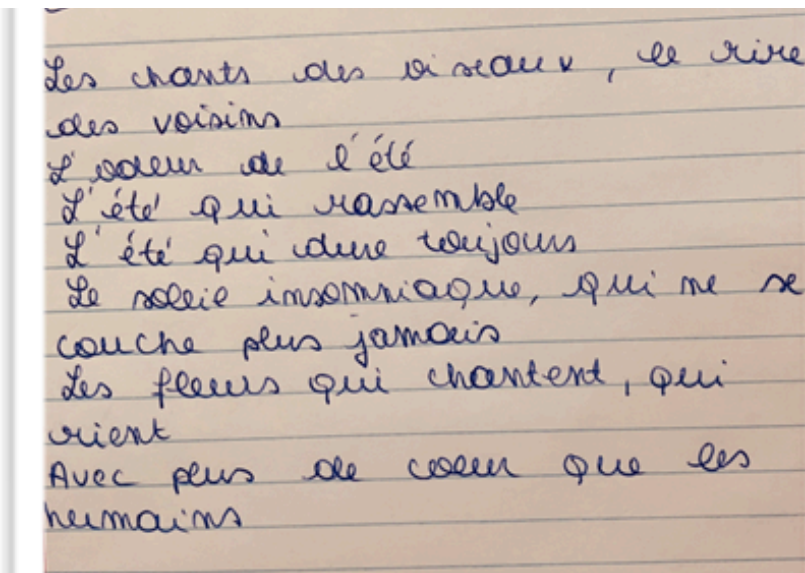 Les chants des oiseaux, le rire
des voisins
L'odeur de l'été
L'été qui rassemble
L'été qui dure toujours
Le soleil insomniaque, qui ne se
couche plus jamais
Les fleurs qui chantent, qui
rient
Avec plus de coeur que les
humains